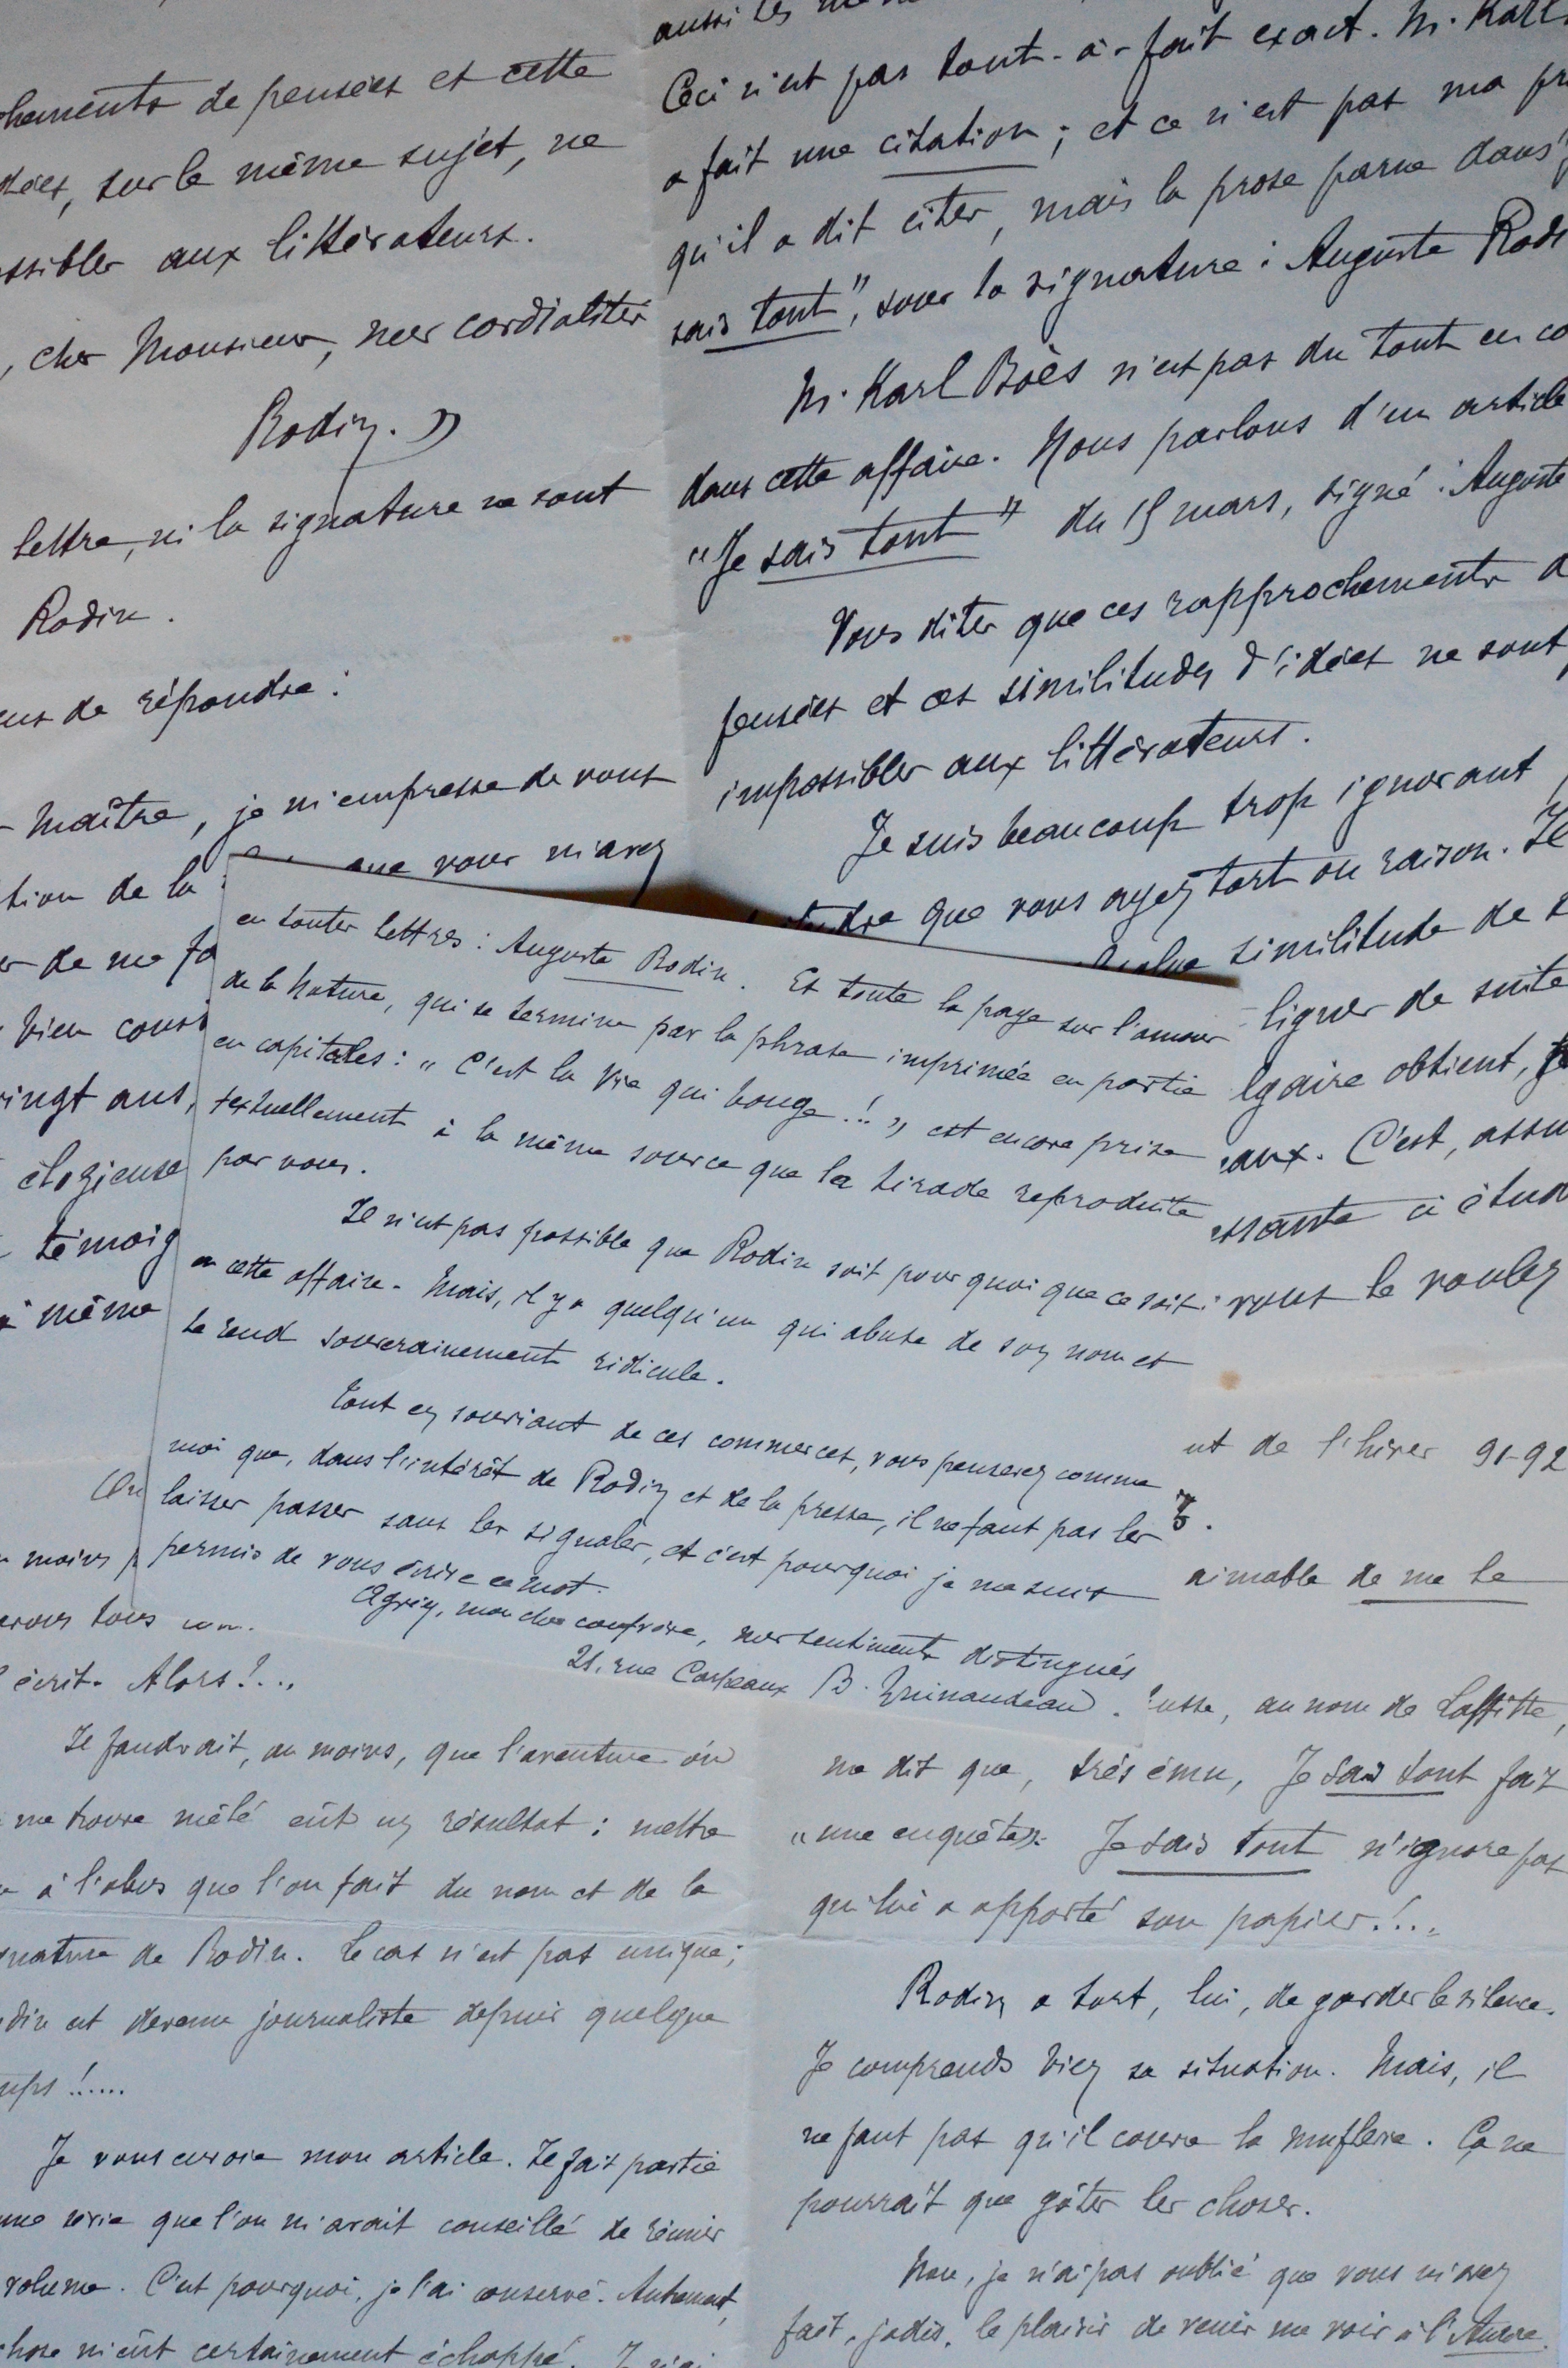 chements de pensées et cette
dées, sur le même sujet, ne
ssibles aux littérateurs.
, cher Monsieur, mes cordialités
Rodin. »
lettre, ni la signature ne sont
Rodin.
de répondre :
Maître, je m'empresse de vous
que vous m'avez
tion de la
de me fa
bien consi
vingt ans,
élogieuse
témoig
même
aussi les
Ceci n'est pas tout-à-fait exact. M. Karl
a fait une citation ; et ce n'est pas ma pr
qu'il a dit citer, mais la prose parue dans "
sais tout", sous la signature : Auguste Rod
M. Karl Boès n'est pas du tout en co
dans cette affaire. Nous parlons d'un article
"Je sais tout" du 15 mars, signé : Auguste
Vous dites que ces rapprochements d
pensées et ces similitudes d'idées ne sont
impossibles aux littérateurs.
Je suis beaucoup trop ignorant
que vous ayez tort ou raison. Il
similitude de
lignes de suite
lgaire obtient,
aux. C'est, assu
ssante à étud
vous le voulez
en toutes lettres : Auguste Rodin. Et toute la page sur l'amour
de la Nature, qui se termine par la phrase imprimée en partie
en capitales : " C'est la Vie qui bouge..! ", est encore prise
textuellement à la même source que la tirade reproduite
par vous.
Il n'est pas possible que Rodin soit pour quoi que ce soit
en cette affaire. Mais, il y a quelqu'un qui abuse de son nom et
le rend souverainement ridicule.
Tout en souriant de ces commerces, vous penserez comme
moi que, dans l'intérêt de Rodin et de la presse, il ne faut pas les
laisser passer sans les signaler, et c'est pourquoi je me suis
permis de vous écrire ce mot.
Agréez, mon cher confrère, mes sentiments distingués
21, rue Carpeaux B. Guinaudeau.
On
moins
tous
écrit. Alors !...
Il faudrait, au moins, que l'aventure où
me trouve mêlé eût un résultat : mettre
à l'abus que l'on fait du nom et de la
nature de Rodin. Le cas n'est pas unique ;
din est devenu journaliste depuis quelque
mps !.....
Je vous envoie mon article. Il fait partie
une série que l'on m'avait conseillé de réunir
volume. C'est pourquoi, je l'ai conservé. Autrement,
chose m'eût certainement échappé.
nt de l'hiver 91-92
aimable de me le
usse, au nom de Laffitte,
me dit que, très ému, Je sais tout fait
"une enquête". Je sais tout n'ignore pas
qui lui a apporté son papier !...
Rodin a tort, lui, de garder le silence.
Je comprends bien sa situation. Mais, il
ne faut pas qu'il couvre la muflerie. Ça ne
pourrait que gâter les choses.
Non, je n'ai pas oublié que vous m'avez
fait, jadis, le plaisir de venir me voir à l'Aurore.